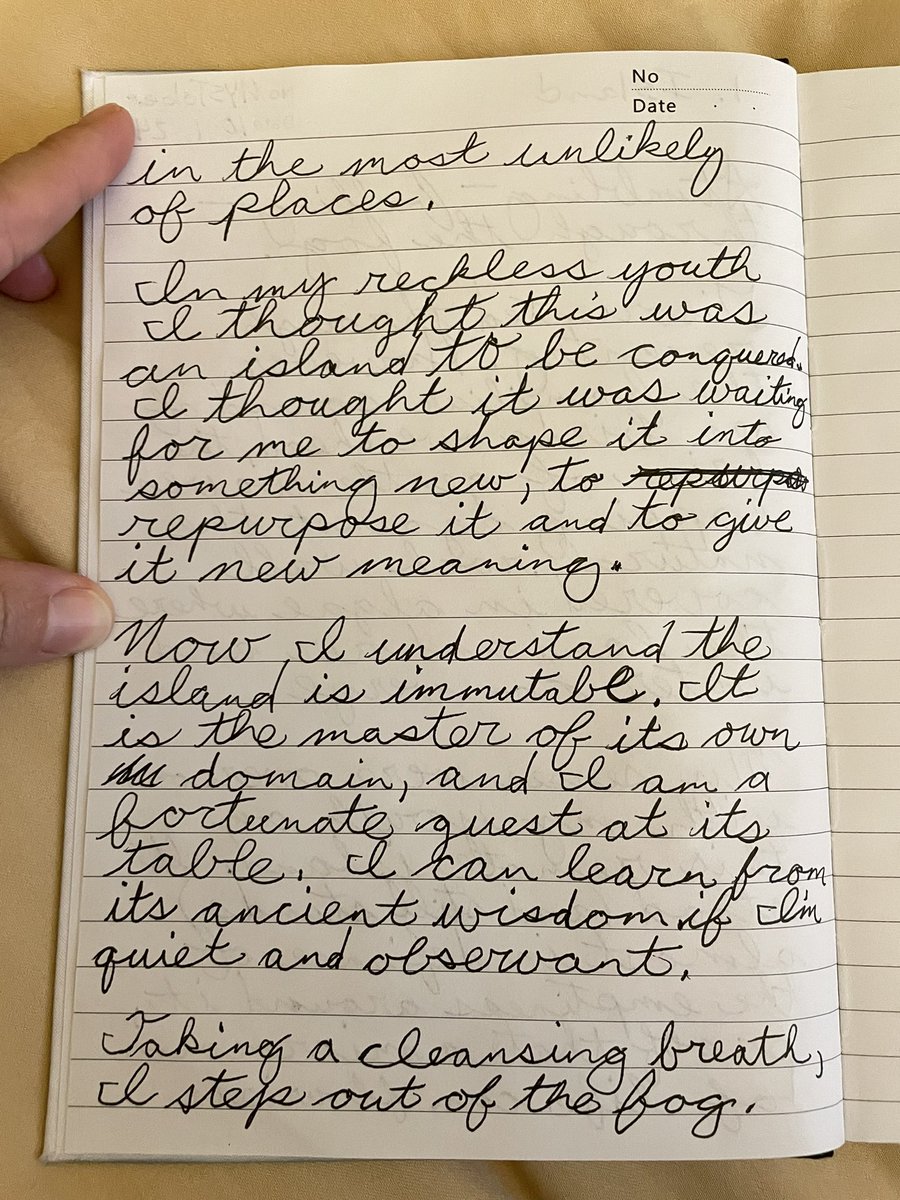 No
Date
in the most unlikely
of places.
In my reckless youth
I thought this was
an island to be conquered.
I thought it was waiting
for me to shape it into
something new, to repurpo
repurpose it and to give
it new meaning.
Now I understand the
island is immutable. It
is the master of its own
domain, and I am a
fortunate guest at its
table. I can learn from
its ancient wisdom if I'm
quiet and observant.
Taking a cleansing breath,
I step out of the fog.